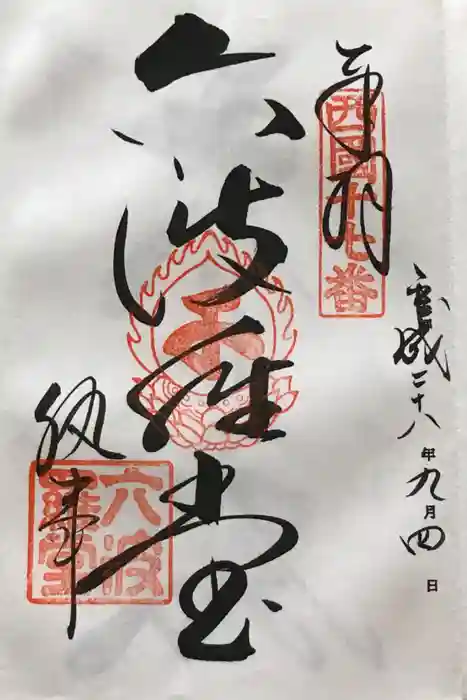 奉拝
西國十七番
平成二十八年九月四日
六波羅堂
執事
六波羅堂